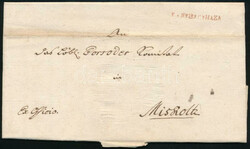 An
das Löbl: Borsoder Comitat
in
Ex Officio. Miskoltz